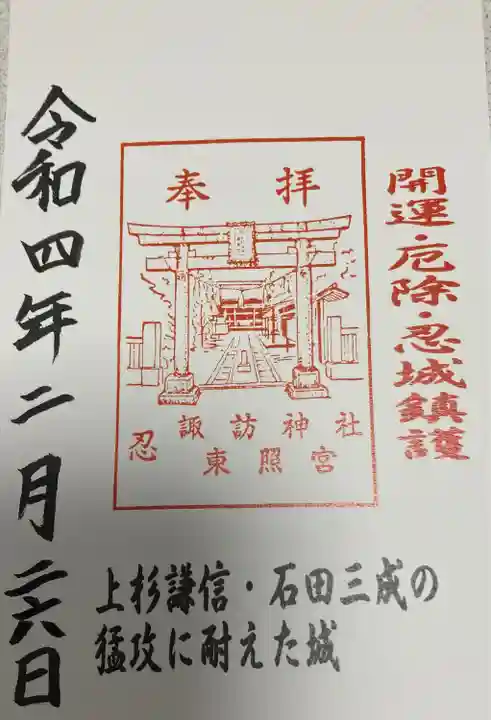 開運・厄除・忍城鎮護
奉拝
諏訪神社
忍東照宮
上杉謙信・石田三成の
猛攻に耐えた城
令和四年二月二六日